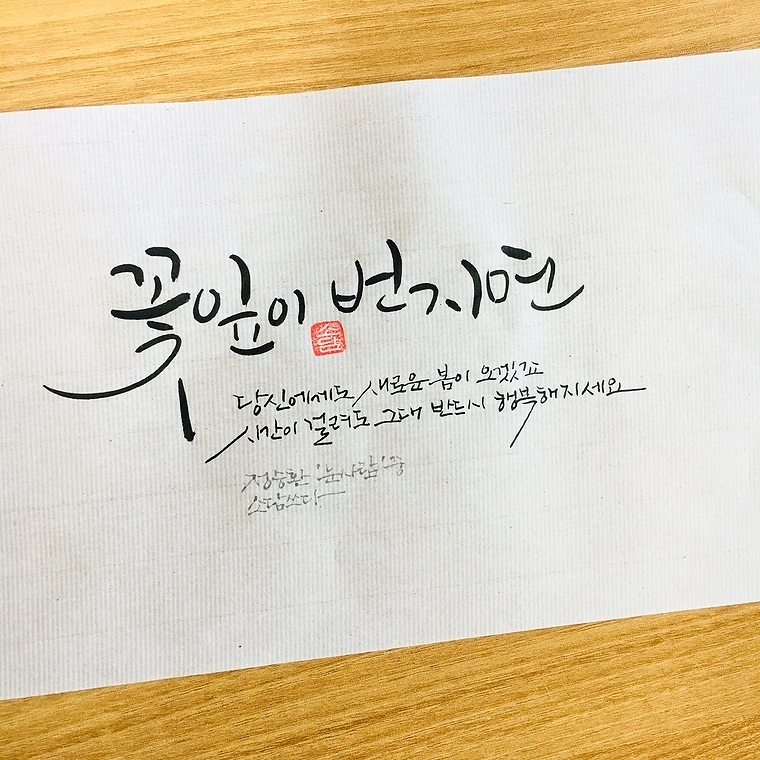 꽃잎이 번지면
소담
당신에게도 새로운 봄이 오겠죠
시간이 걸려도 그대 반드시 행복해지세요
정승환 '눈사람' 중
소담쓰다